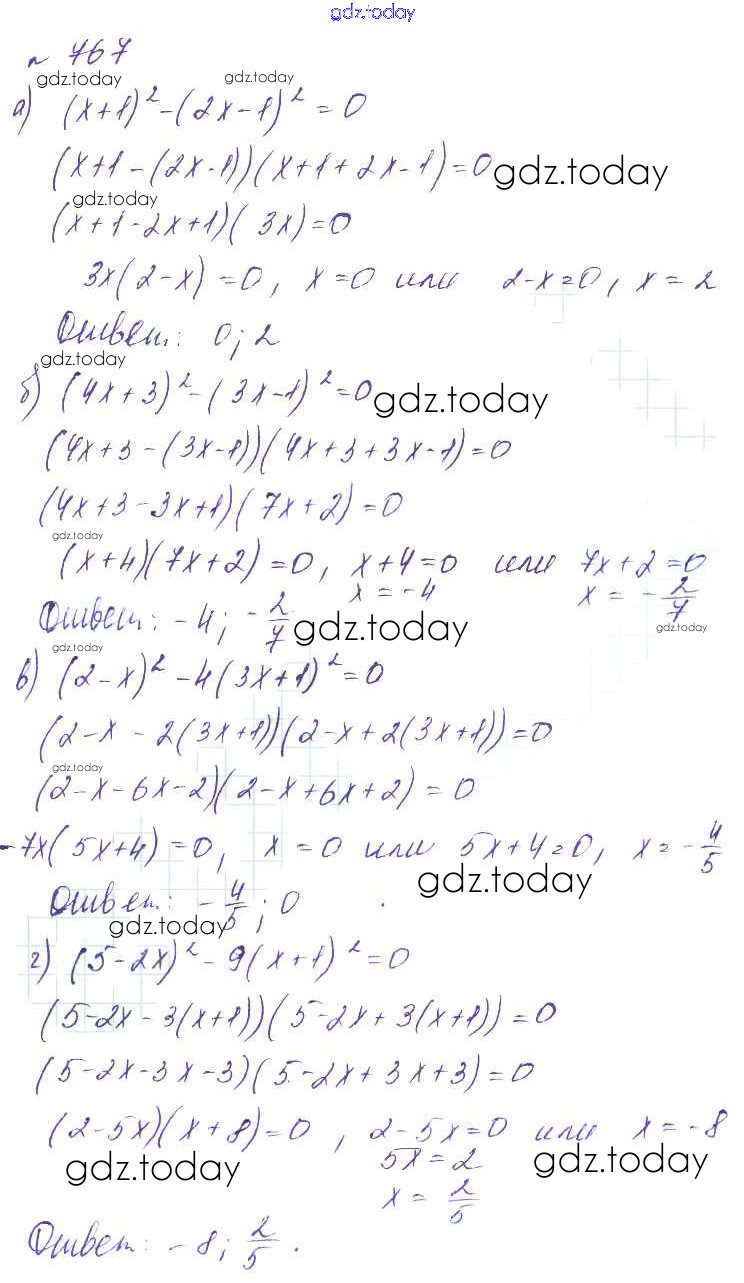 gdz.today
№ 767
gdz.today gdz.today
а) (x+1)² - (2x-1)² = 0
(x+1-(2x-1))(x+1+2x-1)=0 gdz.today
gdz.today
(x+1-2x+1)(3x)=0
3x(2-x)=0, x=0 или 2-x=0, x=2
Ответ: 0; 2
gdz.today
б) (4x+3)² - (3x-1)² = 0 gdz.today
(4x+3-(3x-1))(4x+3+3x-1)=0
(4x+3-3x+1)(7x+2)=0
gdz.today
(x+4)(7x+2)=0, x+4=0 или 7x+2=0
x = -4 x = -2/7
Ответ: -4; -2/7 gdz.today gdz.today
в) (2-x)² - 4(3x+1)² = 0
(2-x-2(3x+1))(2-x+2(3x+1))=0
gdz.today
(2-x-6x-2)(2-x+6x+2)=0
-7x(5x+4)=0, x=0 или 5x+4=0, x=-4/5
gdz.today
Ответ: -4/5; 0.
gdz.today
г) (5-2x)² - 9(x+1)² = 0
(5-2x-3(x+1))(5-2x+3(x+1))=0
gdz.today
(5-2x-3x-3)(5-2x+3x+3)=0
(2-5x)(x+8)=0, 2-5x=0 или x=-8
gdz.today 5x=2 gdz.today
x = 2/5
Ответ: -8; 2/5.